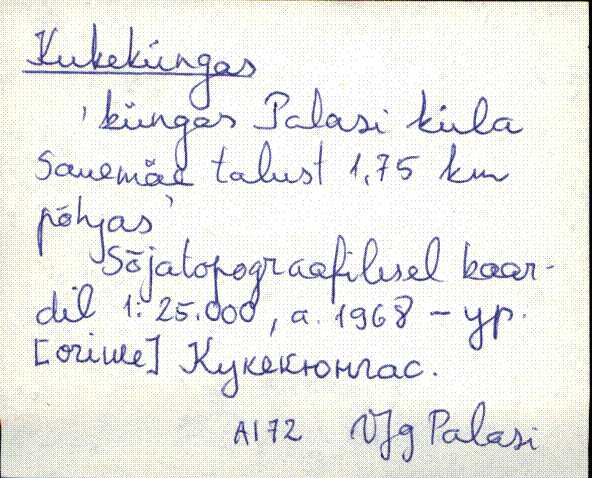 Kukeküngas
'küngas Palasi küla
Sauemäe talust 1,75 km
põhjas'
Sõjatopograafilisel kaar-
dil 1:25.000, a. 1968 – ур.
Кукекюнгас.
AI 72 VJg Palasi